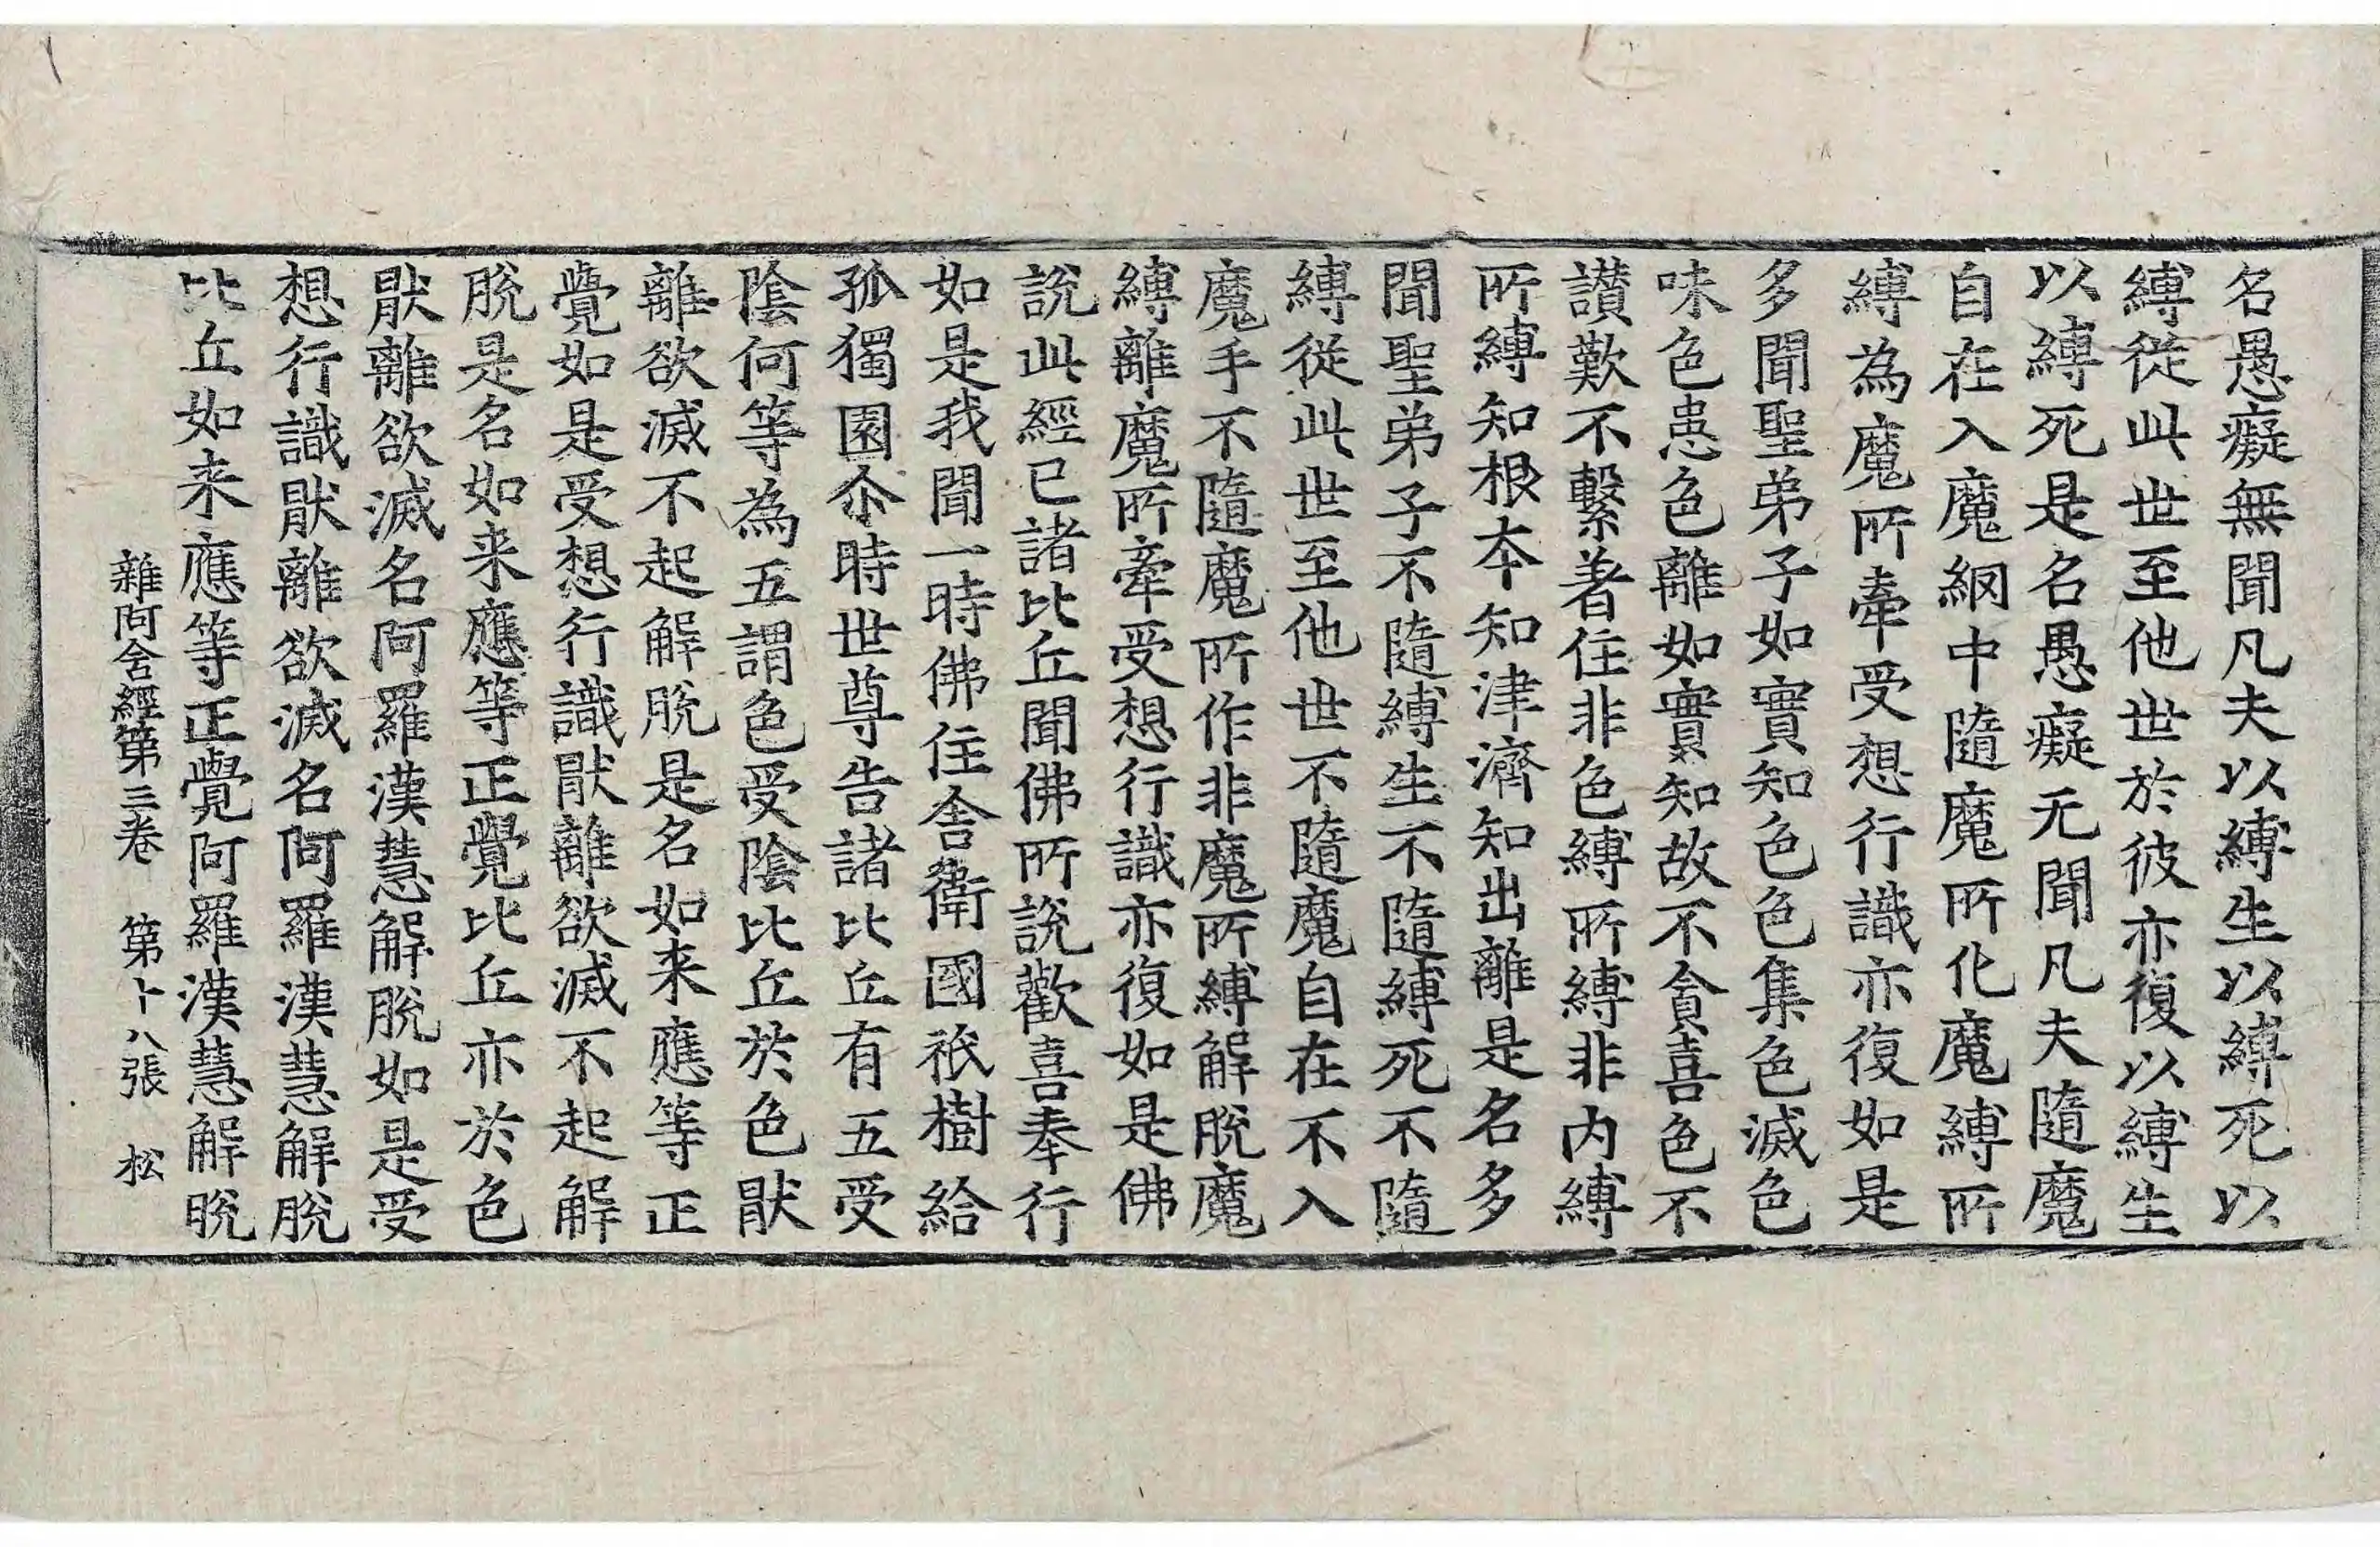 名愚癡無聞凡夫以縛生以縛死以
縛從此世至他世於彼亦復以縛生
以縛死是名愚癡无聞凡夫隨魔
自在入魔網中隨魔所化魔縛所
縛為魔所牽受想行識亦復如是
多聞聖弟子如實知色色集色滅色
味色患色離如實知故不貪喜色不
讃歎不繫著住非色縛所縛非内縛
所縛知根本知津濟知出離是名多
聞聖弟子不隨縛生不隨縛死不隨
縛從此世至他世不隨魔自在不入
魔手不隨魔所作非魔所縛解脫魔
縛離魔所牽受想行識亦復如是佛
說此經已諸比丘聞佛所說歡喜奉行
如是我聞一時佛住舍衛國祇樹給
孤獨園尒時世尊告諸比丘有五受
陰何等為五謂色受陰比丘於色猒
離欲滅不起解脫是名如来應等正
覺如是受想行識猒離欲滅不起解
脫是名如来應等正覺比丘亦於色
猒離欲滅名阿羅漢慧解脫如是受
想行識猒離欲滅名阿羅漢慧解脫
比丘如来應等正覺阿羅漢慧解脫
雜阿含經第三卷 第十八張 松